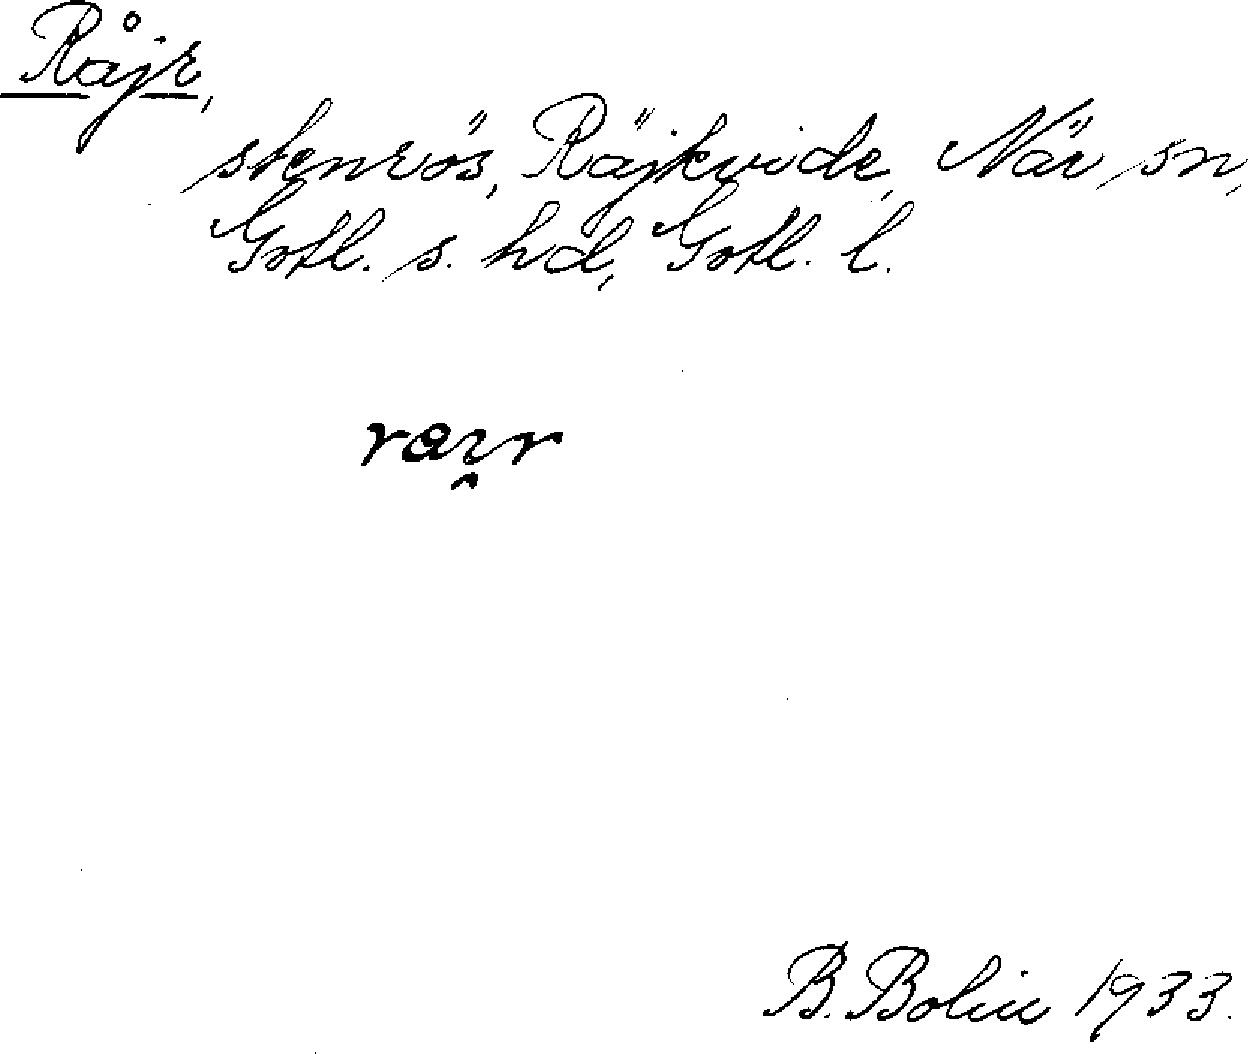 Råjr,
stenrös, Räjkvide, När sn,
Gotl. s. hd, Gotl. l.
B. Bolin 1933.